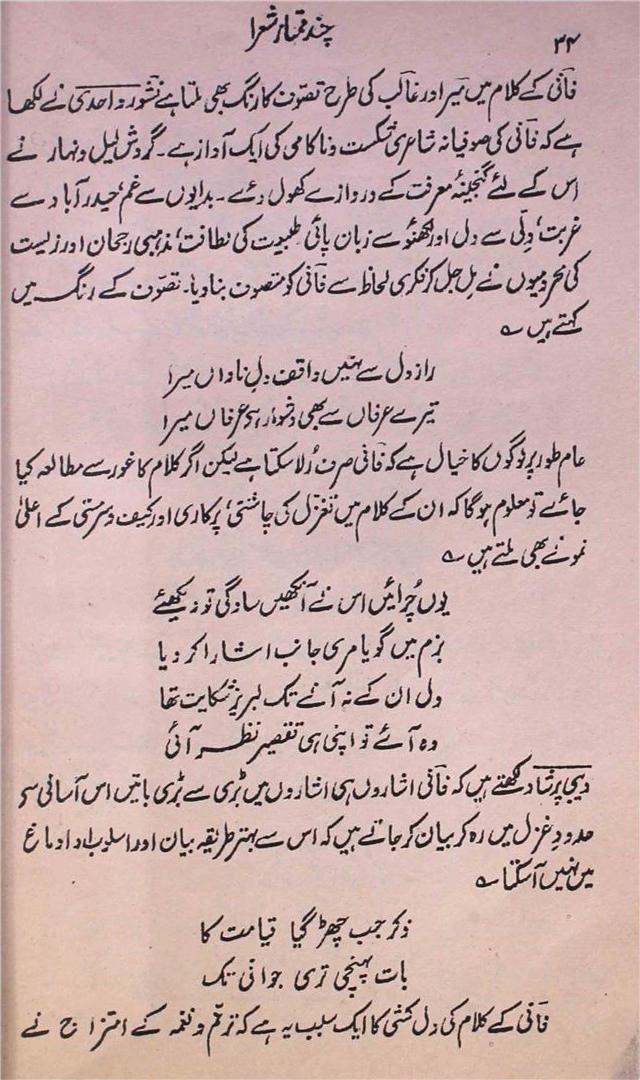 ۳۴
چند ممتاز شعرا
فانی کے کلام میں میر اور غالب کی طرح تصوّف کا رنگ بھی ملتا ہے نشور واحدی نے لکھا
ہے کہ فانی کی صوفیانہ شاعری شکست و ناکامی کی ایک آواز ہے۔ گردش لیل و نہار نے
اس کے لئے گنجینۂ معرفت کے دروازے کھول دئے۔ بدایوں سے غم، حیدر آباد سے
غربت، دلّی سے دل اور لکھنؤ سے زبان پائی۔ طبیعت کی لطافت، مذہبی رجحان اور زیست
کی محرومیوں نے مِل جل کر فکری لحاظ سے فانی کو متصوف بنا دیا۔ تصوّف کے رنگ میں
کہتے ہیں ؎
راز دل سے نہیں واقف دلِ ناداں میرا
تیرے عرفاں سے بھی دشوار ہے عرفاں میرا
عام طور پر لوگوں کا خیال ہے کہ فانی صرف رُلا سکتا ہے لیکن اگر کلام کا غور سے مطالعہ کیا
جائے تو معلوم ہوگا کہ ان کے کلام میں تغزّل کی چاشنی، پرکاری اور کیف و سرمستی کے اعلیٰ
نمونے بھی ملتے ہیں ؎
یوں چُرائیں اس نے آنکھیں سادگی تو دیکھئے
بزم میں گویا مری جانب اشارا کر دیا
دل ان کے نہ آنے تک لبریزِ شکایت تھا
وہ آئے تو اپنی ہی تقصیر نظر آئی
دیبی پرشاد لکھتے ہیں کہ فانی اشاروں ہی اشاروں میں بڑی سے بڑی باتیں اس آسانی سے
حدودِ غزل میں رہ کر بیان کر جاتے ہیں کہ اس سے بہتر طریقہ بیان اور اسلوب ادا دماغ
میں نہیں آسکتا ؎
ذکر جب چھڑ گیا قیامت کا
بات پہنچی تری جوانی تک
فانی کے کلام کی دل کشی کا ایک سبب یہ ہے کہ ترنّم و نغمہ کے امتزاج نے